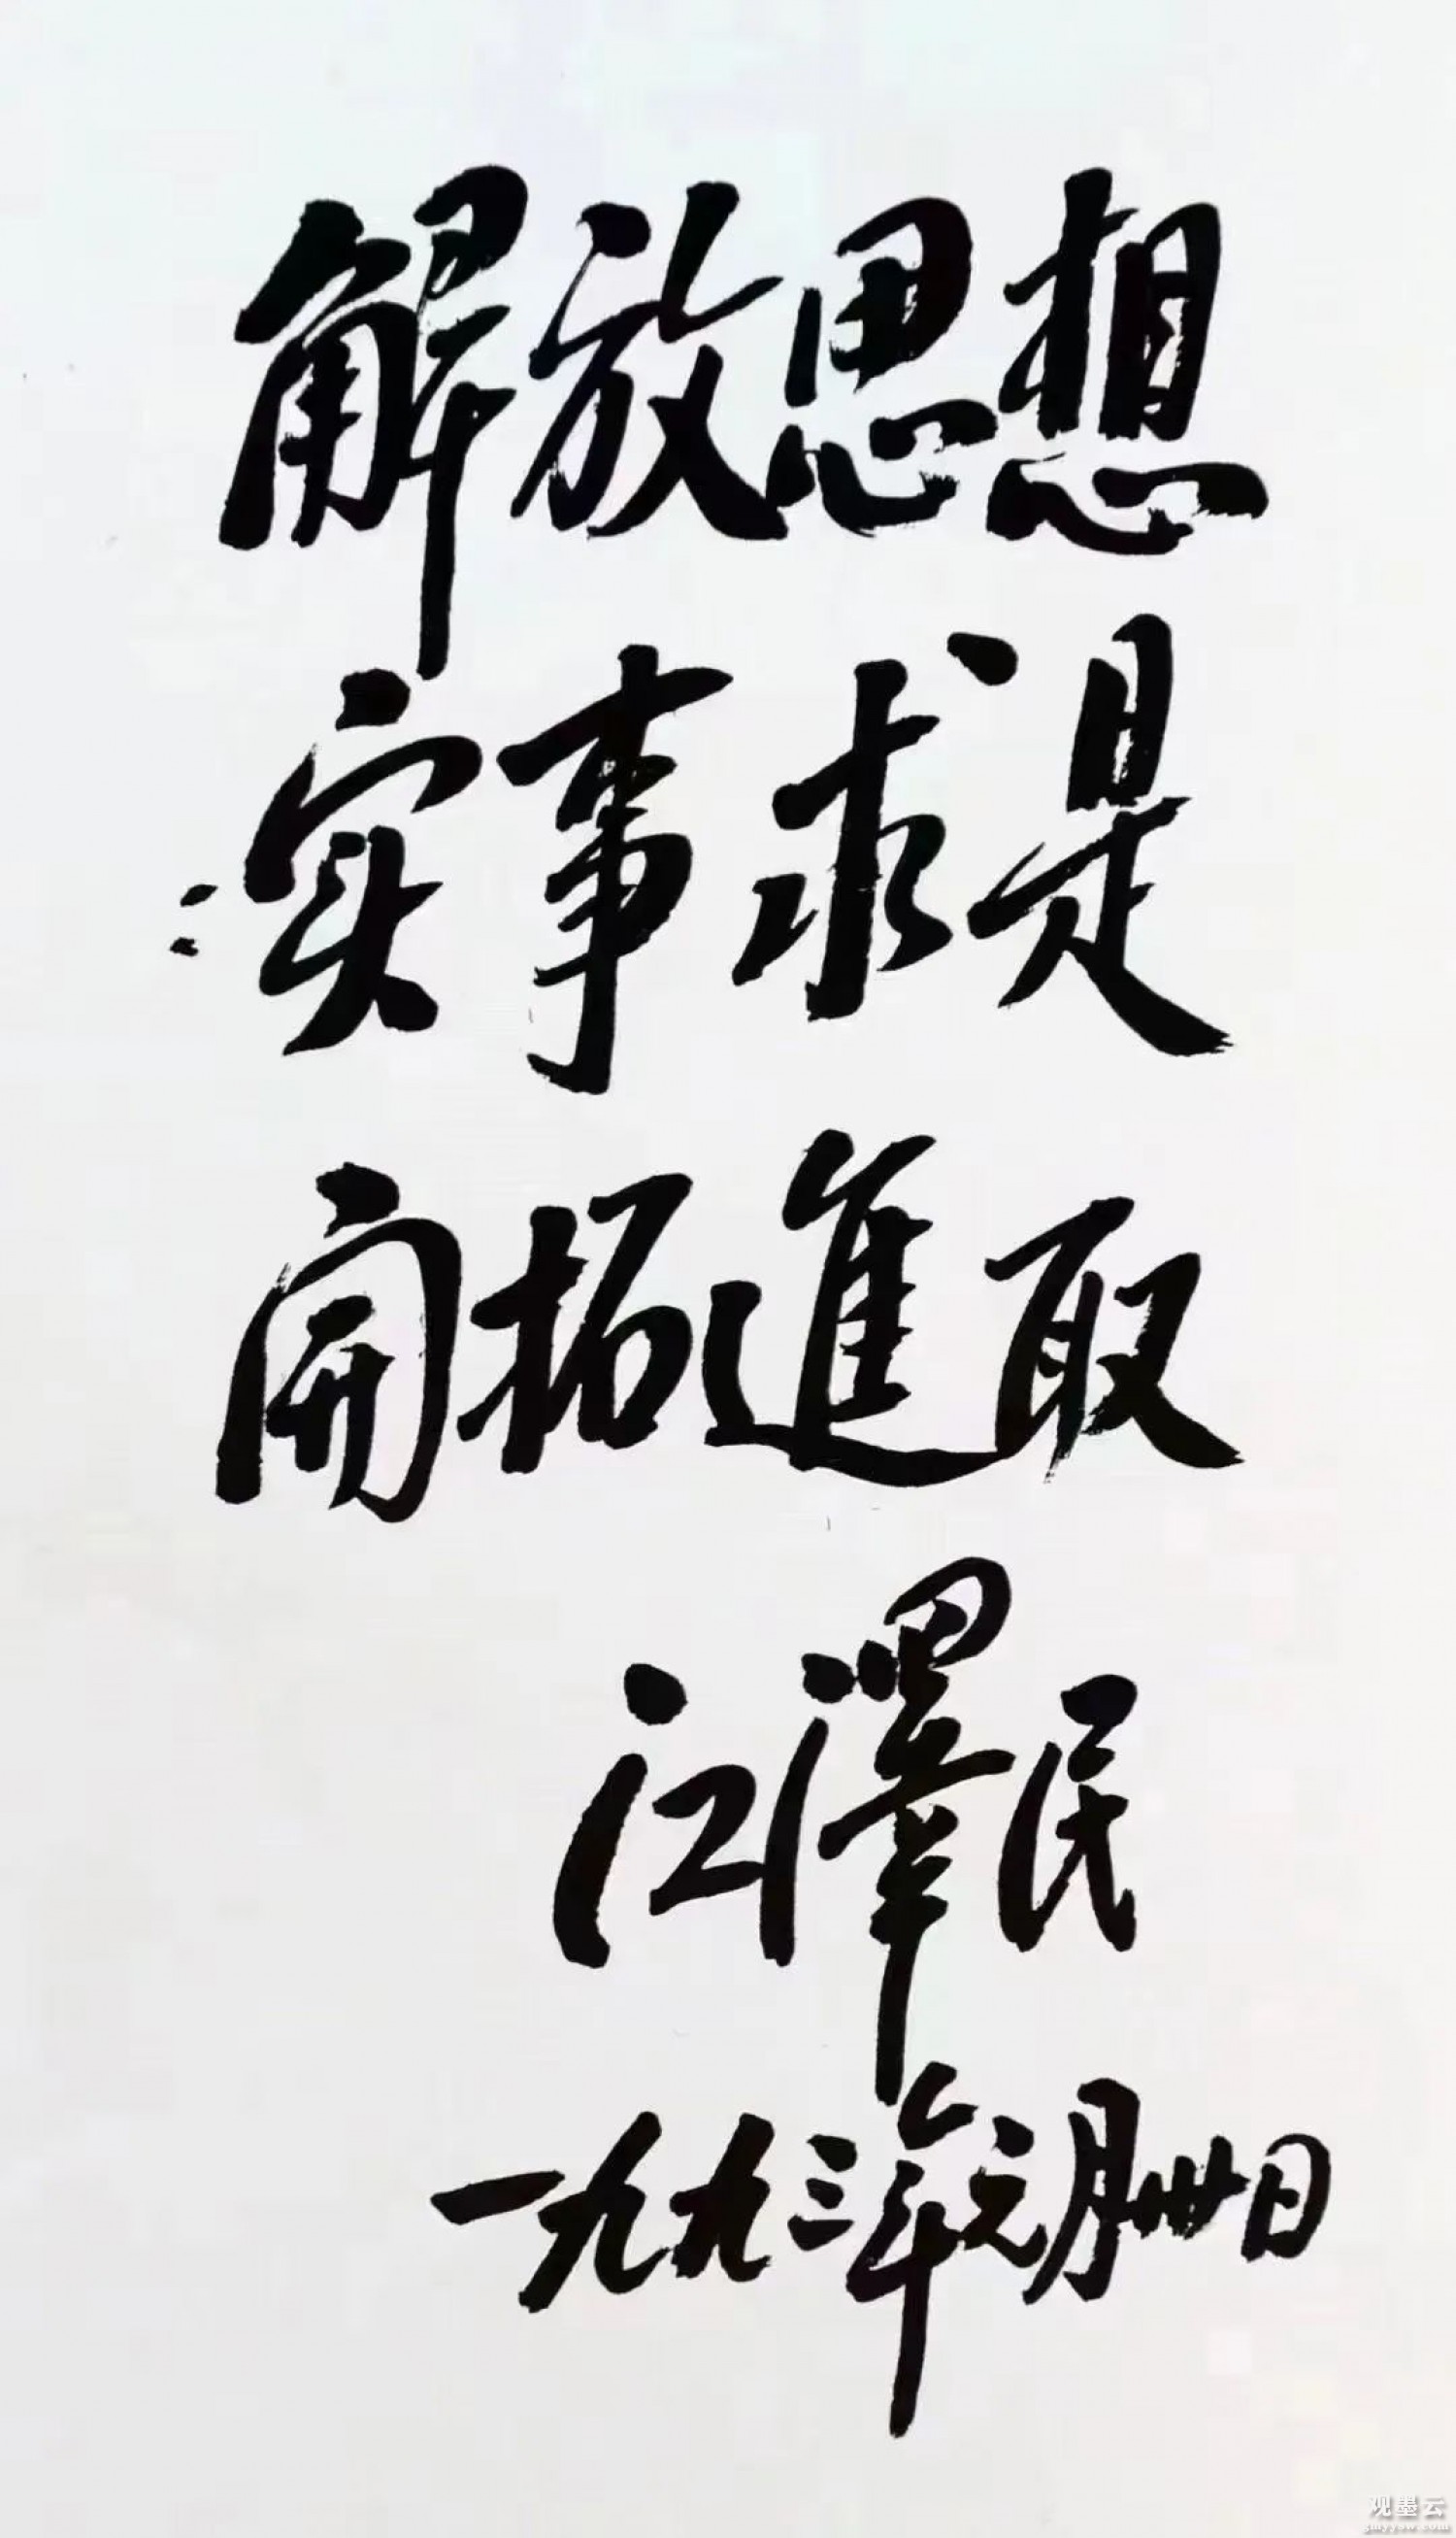 解放思想
实事求是
开拓進取
江澤民
一九九三年元月卅日
观墨云
gmyysw.com